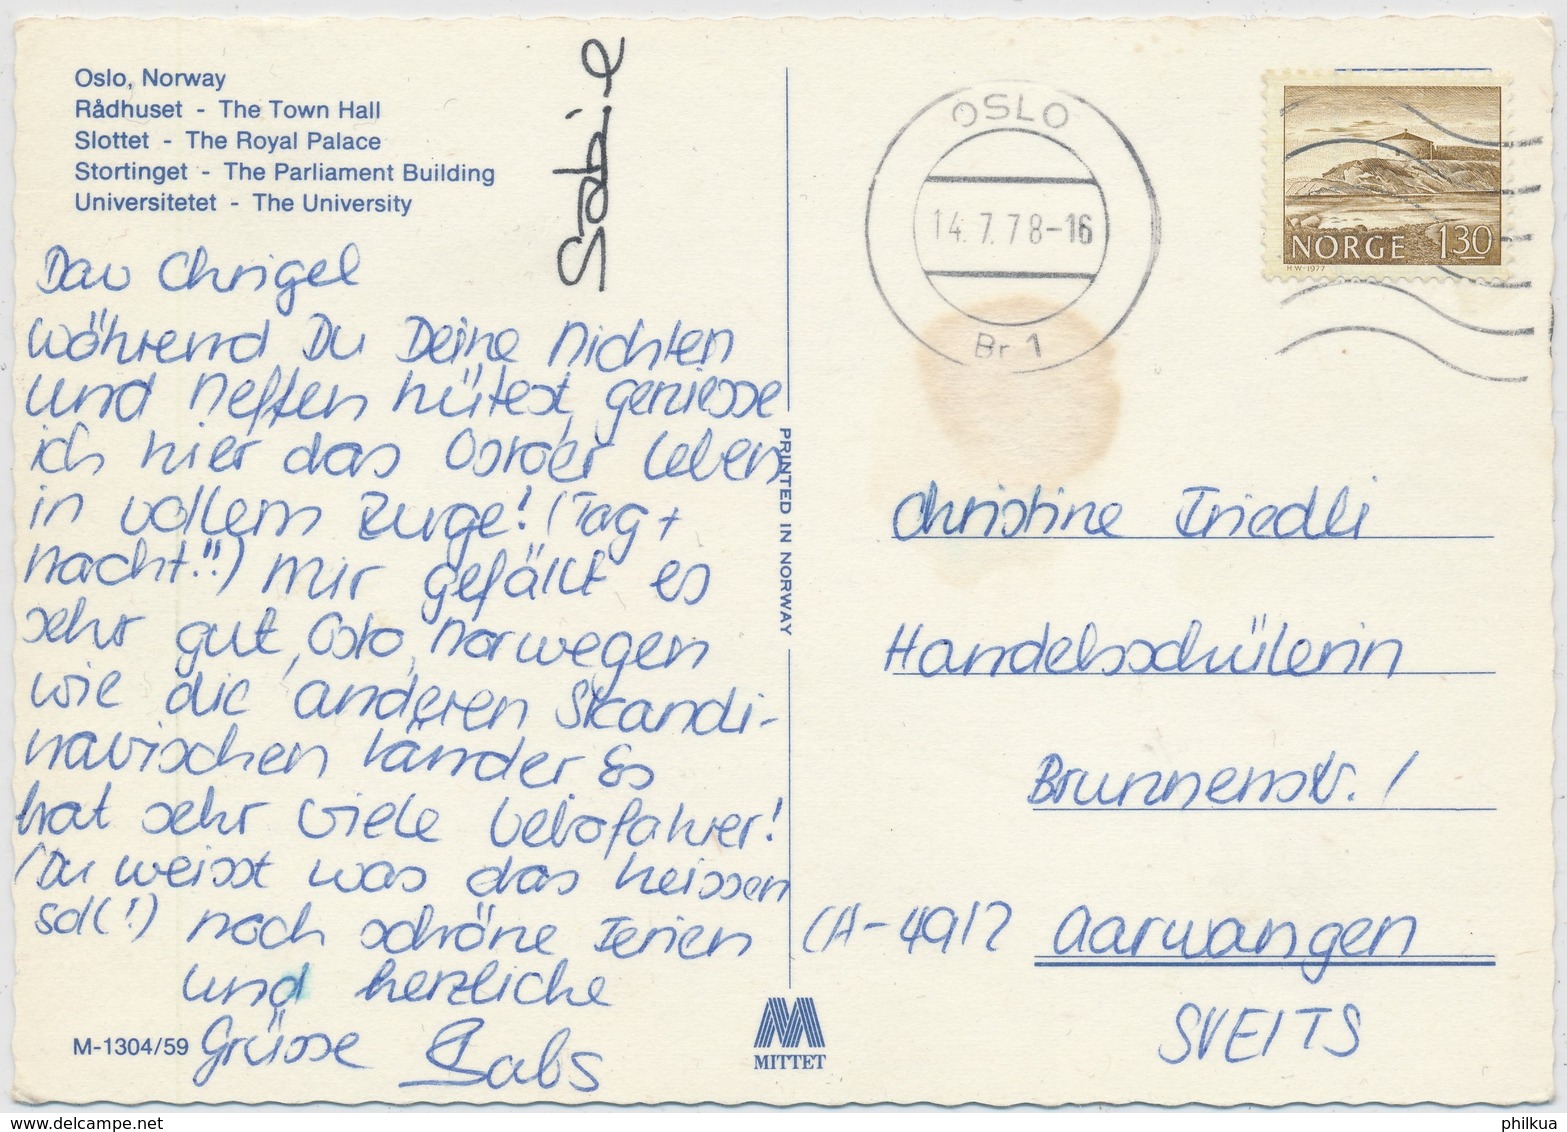 Oslo, Norway
Rådhuset - The Town Hall
Slottet - The Royal Palace
Stortinget - The Parliament Building
Universitetet - The University
Sabine
Dau Chrigel
während Du Deine Nichten
und Neffen hütest, geniesse
ich hier das Osloer Leben
in vollem Zuge! (Tag +
Nacht!!) Mir gefällt es
sehr gut, Oslo, Norwegen
wie die anderen Skandi-
navischen Länder Es
hat sehr viele Velofahrer!
(Du weisst was das heissen
soll!) noch schöne Ferien
und herzliche
Grüsse Sabs
M-1304/59
PRINTED IN NORWAY
MITTET
OSLO
14.7.78-16
Br 1
NORGE 130
H.W-1977
Christine Friedli
Handelsschülerin
Brunnenstr. 1
CH-4912 Aarwangen
SVEITS
delcampe.net
philkua